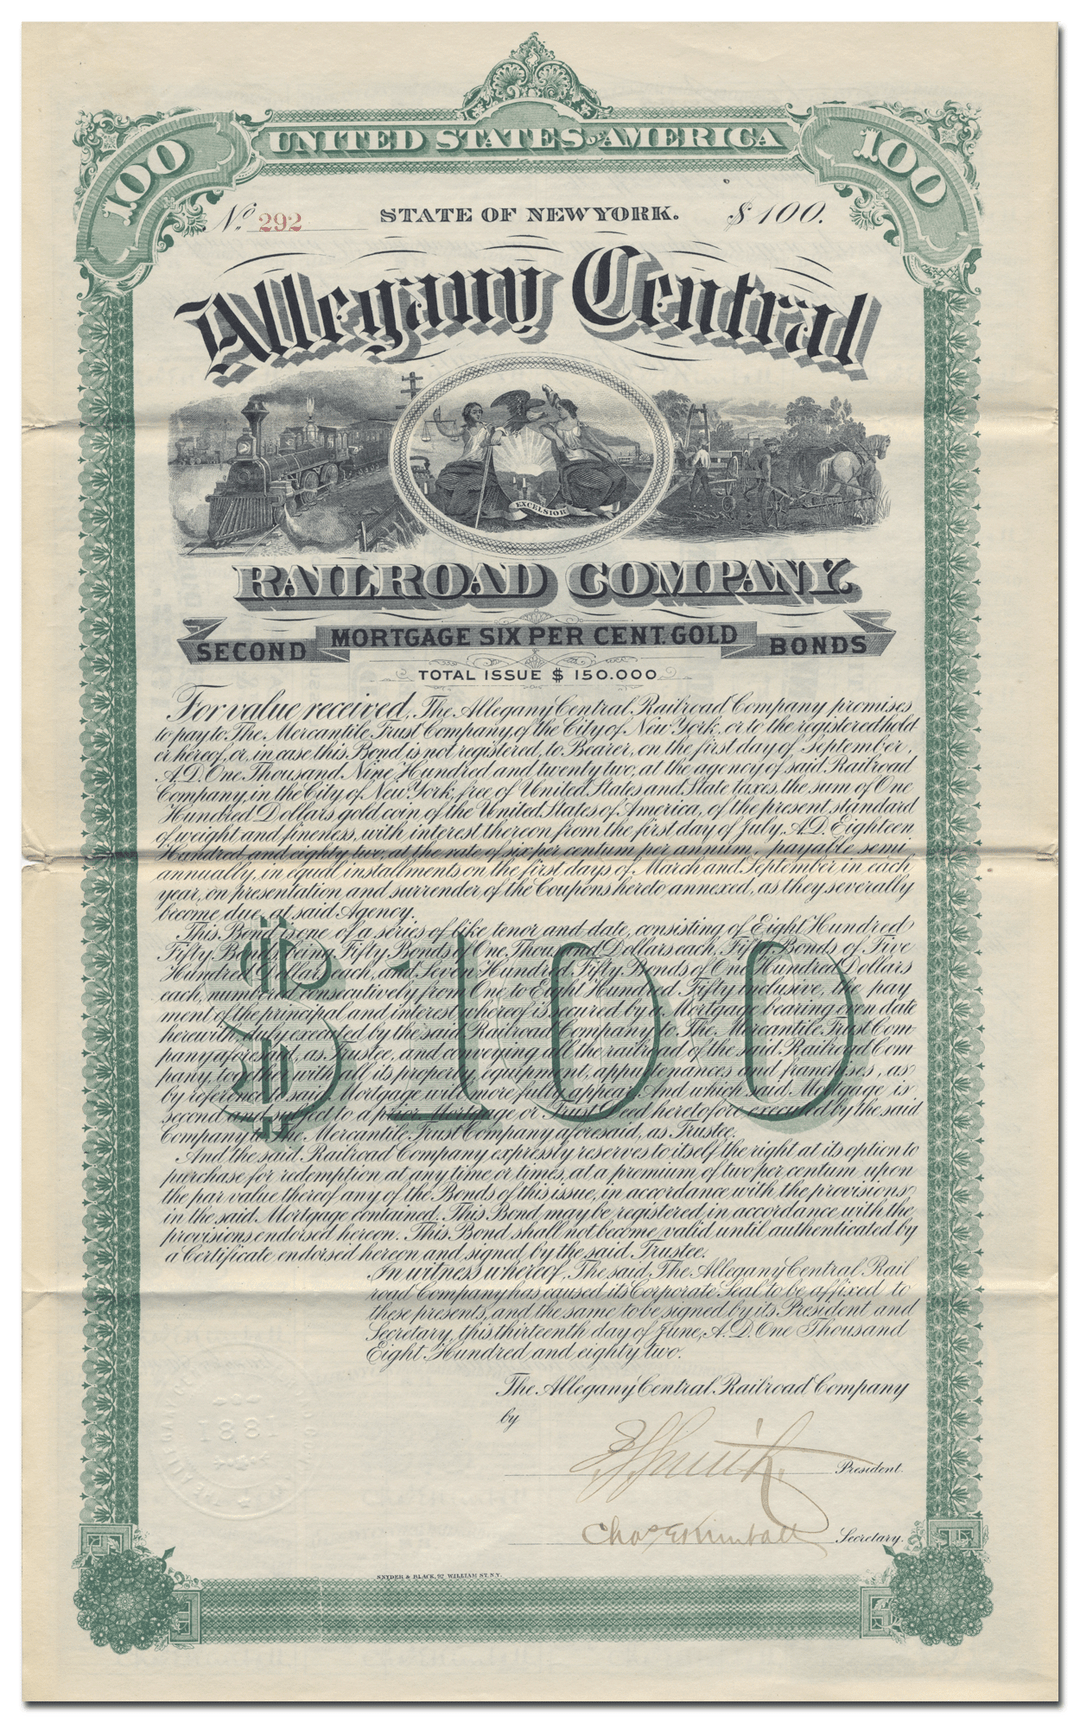 UNITED STATES OF AMERICA
100
100
No. 292
STATE OF NEW YORK.
$100.
Allegany Central
EXCELSIOR
RAILROAD COMPANY.
SECOND MORTGAGE SIX PER CENT. GOLD BONDS
TOTAL ISSUE $150.000
For value received, The Allegany Central Railroad Company promises
to pay to The Mercantile Trust Company of the City of New York, or to the registered hold
er hereof, or, in case this Bond is not registered, to Bearer, on the first day of September,
A.D. One Thousand Nine Hundred and twenty two, at the agency of said Railroad
Company, in the City of New York, free of United States and State taxes, the sum of One
Hundred Dollars gold coin of the United States of America, of the present standard
of weight and fineness, with interest thereon from the first day of July, A.D. Eighteen
Hundred and eighty two, at the rate of six per centum per annum, payable semi
annually, in equal installments on the first days of March and September in each
year, on presentation and surrender of the Coupons hereto annexed, as they severally
become due, at said Agency.
This Bond is one of a series of like tenor and date, consisting of Eight Hundred
Fifty Bonds, being Fifty Bonds of One Thousand Dollars each, Fifty Bonds of Five
Hundred Dollars each, and Seven Hundred Fifty Bonds of One Hundred Dollars
each, numbered consecutively from One to Eight Hundred Fifty inclusive, the pay
ment of the principal and interest whereof is secured by a Mortgage bearing even date
herewith, duly executed by the said Railroad Company to The Mercantile Trust Com-
pany aforesaid, as Trustee, and conveying all the railroad of the said Railroad Com
pany, together with all its property, equipment, appurtenances and franchises, as
by reference to said Mortgage will more fully appear. And which said Mortgage is
second and subject to a prior Mortgage or Trust Deed heretofore executed by the said
Company to The Mercantile Trust Company aforesaid, as Trustee.
And the said Railroad Company expressly reserves to itself the right at its option to
purchase for redemption at any time or times, at a premium of two per centum upon
the par value thereof any of the Bonds of this issue, in accordance with the provisions
in the said Mortgage contained. This Bond may be registered in accordance with the
provisions endorsed hereon. This Bond shall not become valid until authenticated by
a Certificate endorsed hereon and signed by the said Trustee.
$100
In witness whereof, The said, The Allegany Central Rail
road Company has caused its Corporate Seal to be affixed to
these presents, and the same to be signed by its President and
Secretary, this thirteenth day of June, A.D. One Thousand
Eight Hundred and eighty two.
The Allegany Central Railroad Company
by
1881
President.
Chas E Kimball Secretary.
SNYDER & BLACK, 92 WILLIAM ST. N.Y.